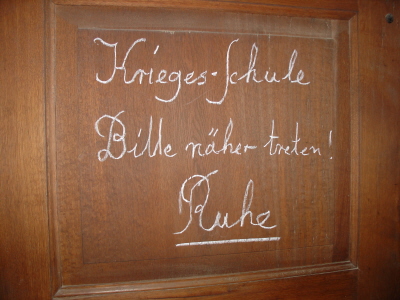 Krieges-Schule
Bitte näher treten!
Ruhe